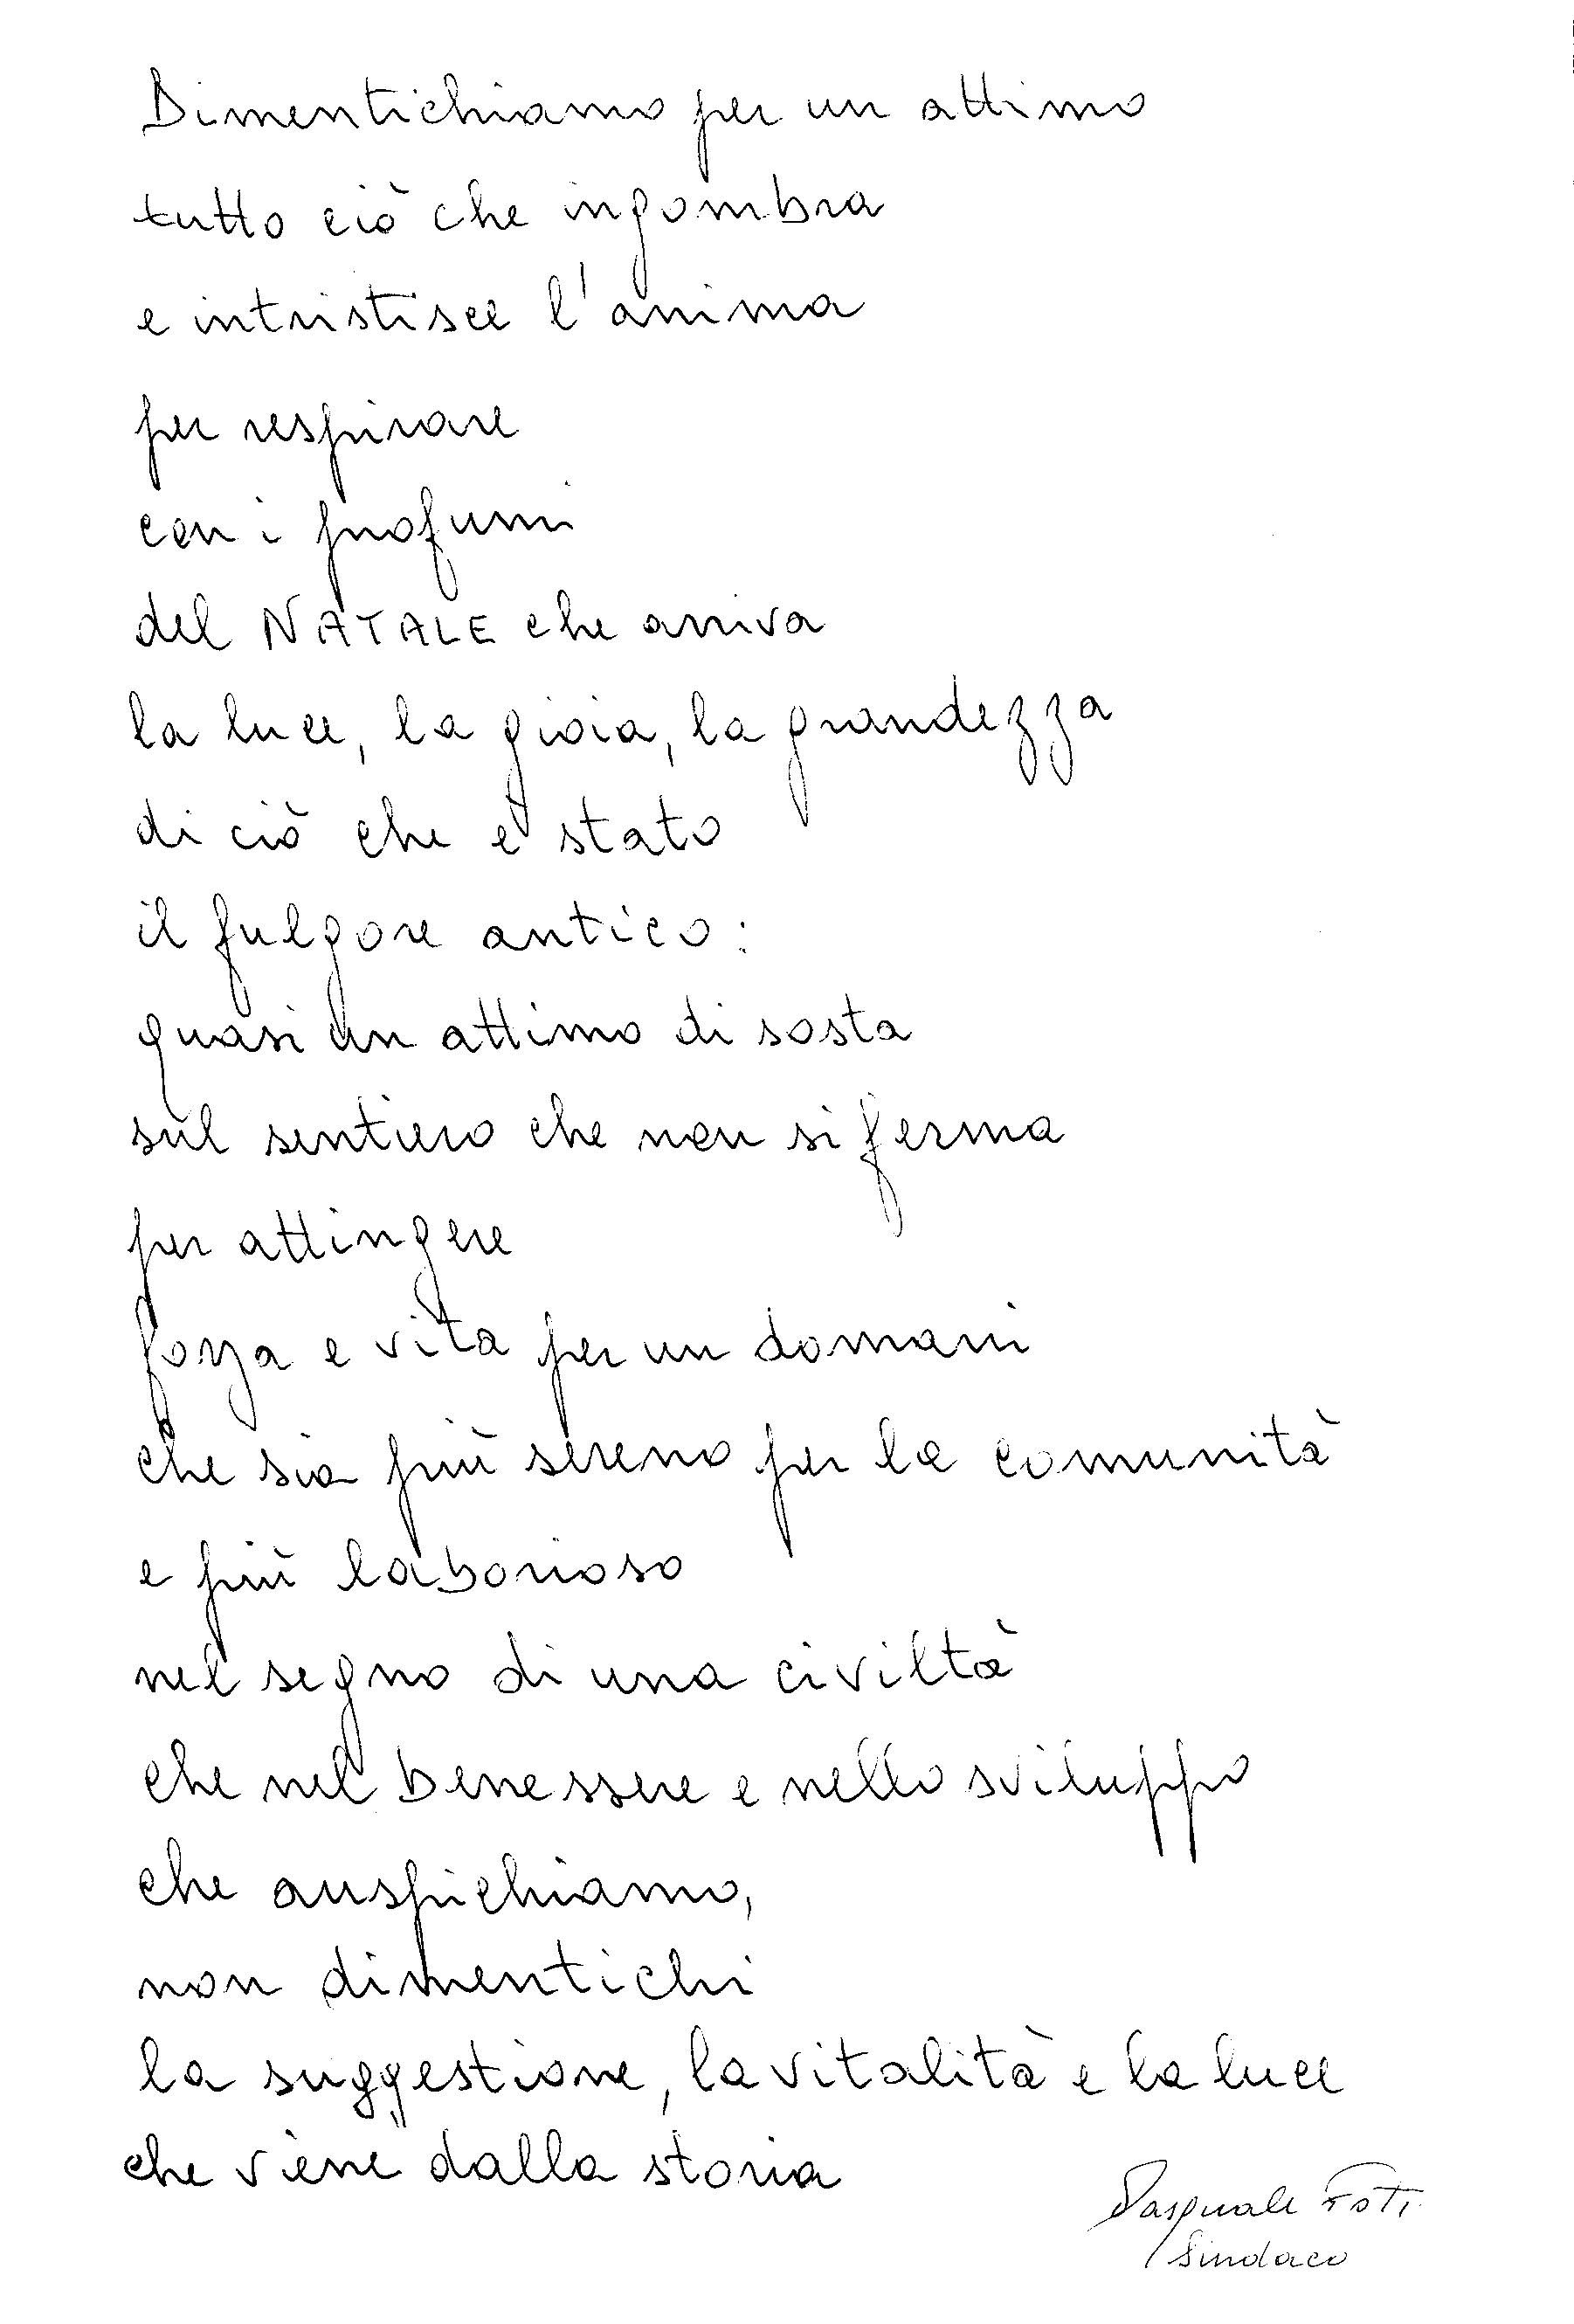 Dimentichiamo per un attimo
tutto ciò che ingombra
e intristisce l'anima
per respirare
con i profumi
del NATALE che arriva
la luce, la gioia, la grandezza
di ciò che è stato
il fulgore antico:
quasi un attimo di sosta
sul sentiero che non si ferma
per attingere
forza e vita per un domani
che sia più sereno per la comunità
e più laborioso
nel segno di una civiltà
che nel benessere e nello sviluppo
che auspichiamo,
non dimentichi
la suggestione, la vitalità e la luce
che viene dalla storia
Pasquale Foti
Sindaco